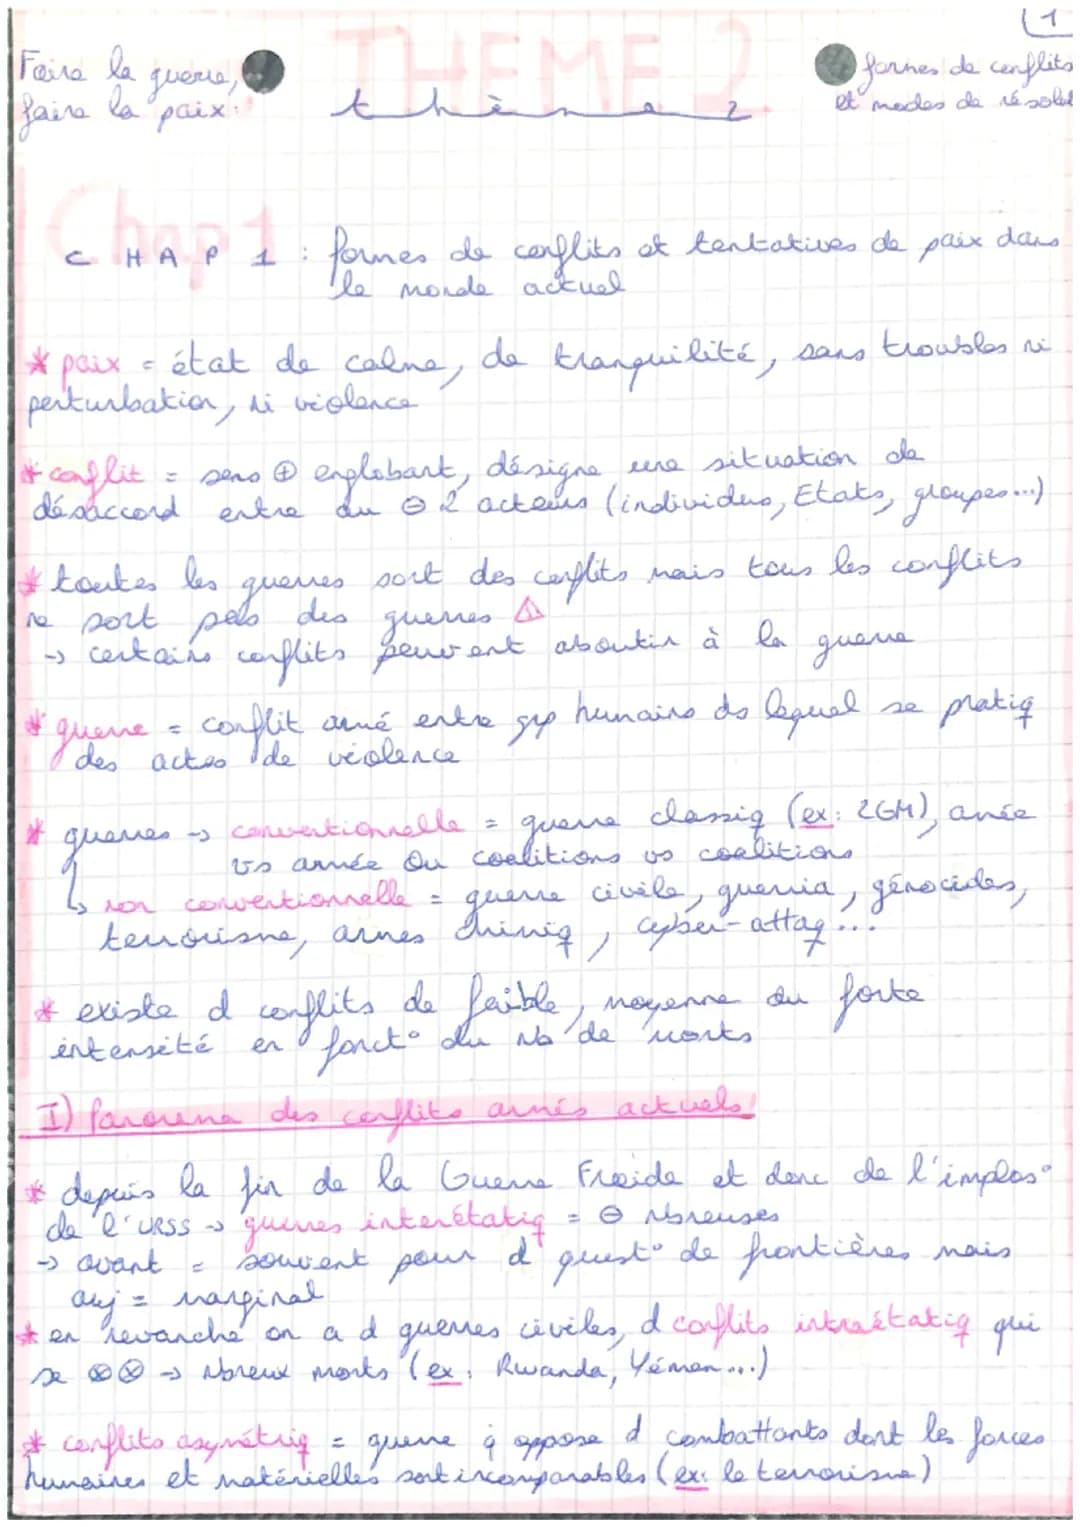 (1
Faire la guerre,
faire la paix:
THEME 2
thème 2
formes de conflits
et modes de résolut
Chap 1
CHAP 1 : formes de conflits et tentatives de paix dans
le monde actuel
* paix = état de calme, de tranquilité, sans troubles ni
perturbation, ni violence
* conflit = sens ⊕ englobant, désigne une situation de
désaccord entre au ⊖ 2 acteurs (individus, Etats, groupes...)
* toutes les guerres sont des conflits mais tous les conflits
ne sont pas des guerres ⚠
-> certains conflits peuvent aboutir à la guerre
* guerre = conflit armé entre grp humains ds lequel se pratiq
des actes de violence
* guerres -> conventionnelle = guerre classiq (ex: 2GM), armée
vs armée ou coalitions vs coalitions
↳ non conventionnelle = guerre civile, guerria, génocides,
terrorisme, armes chimiq, cyber-attaq...
* existe d conflits de faible, moyenne ou forte
intensité en fonct° du nb de morts
I) Panorama des conflits armés actuels
* depuis la fin de la Guerre Froide et donc de l'implos°
de l'URSS -> guerres interétatiq = ⊖ nbreuses
-> avant = souvent pour d quest° de frontières mais
auj = marginal
* en revanche on a d guerres civiles, d conflits intraétatiq qui
se ⊗⊗ -> nbreux morts (ex: Rwanda, Yémen...)
* conflits asymétriq = guerre q oppose d combattants dont les forces
humaines et matérielles sont incomparables (ex: le terrorisme)